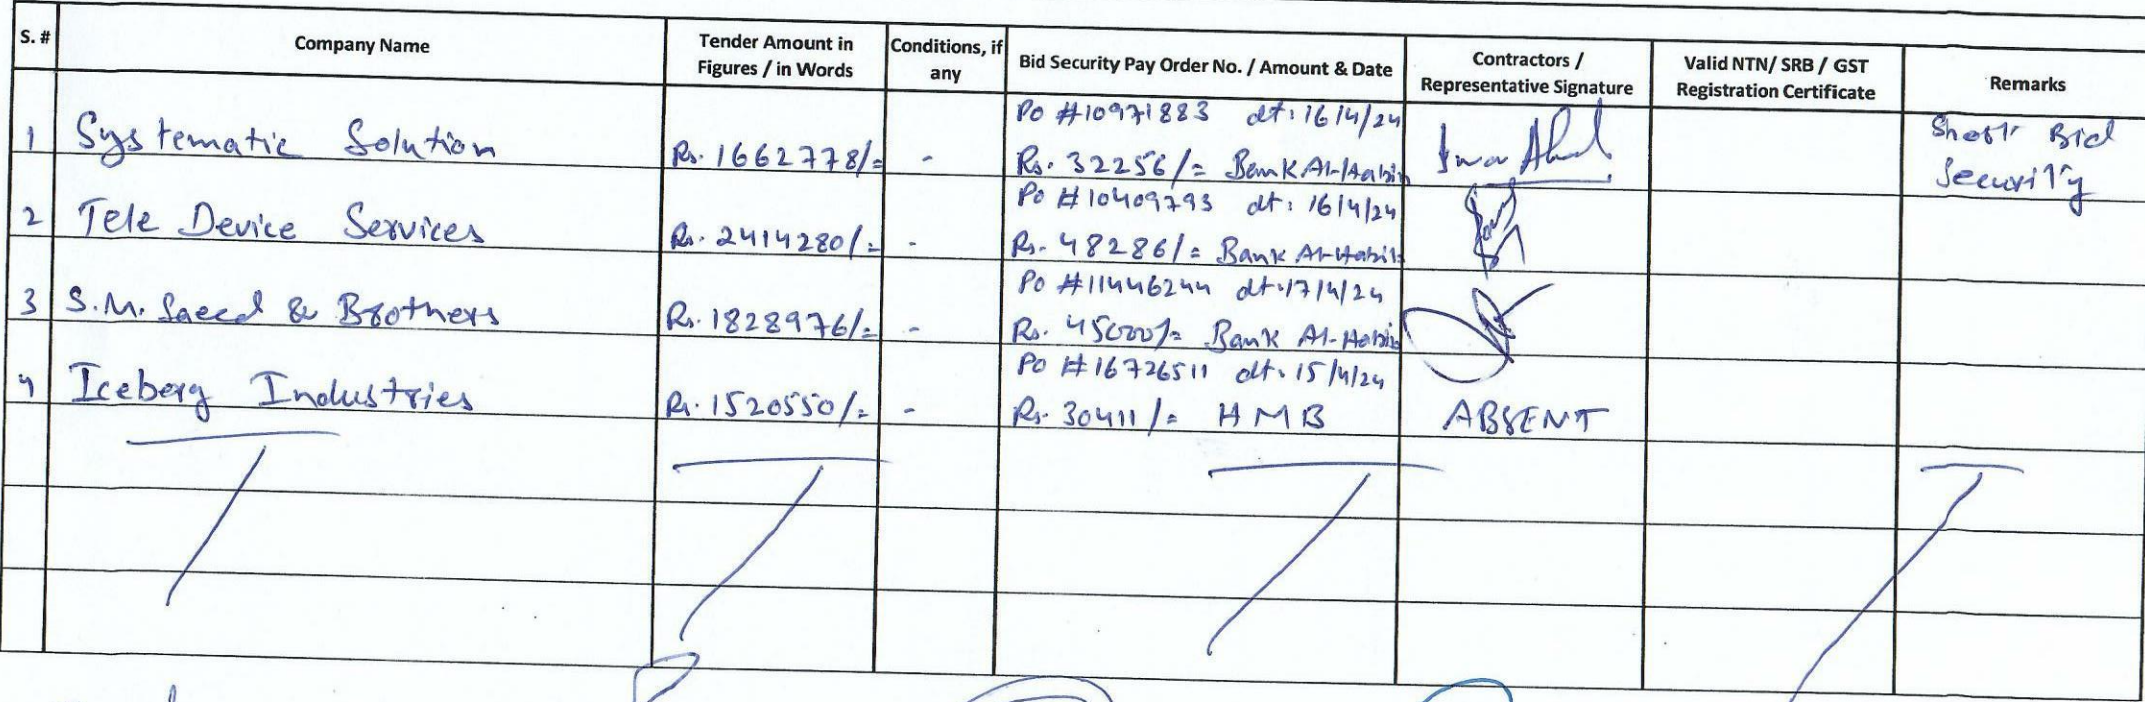 S. #
Company Name
Tender Amount in
Figures / in Words
Conditions, if
any
Bid Security Pay Order No. / Amount & Date
Contractors /
Representative Signature
Valid NTN/ SRB / GST
Registration Certificate
Remarks
1 Systematic Solution
Rs. 1662778/=
-
Po #10971883 dt: 16/4/24
Rs. 32256/= Bank Al-Habib
Short Bid
Security
2 Tele Device Services
Rs. 2414280/=
-
Po #10409793 dt: 16/4/24
Rs. 48286/= Bank Al-Habib
3 S.M. Saeed & Brothers
Rs. 1828976/=
-
Po #11446244 dt: 17/4/24
Rs. 45000/= Bank Al-Habib
4 Iceberg Industries
Rs. 1520550/=
-
Po #16726511 dt. 15/4/24
Rs. 30411/= HMB
ABSENT